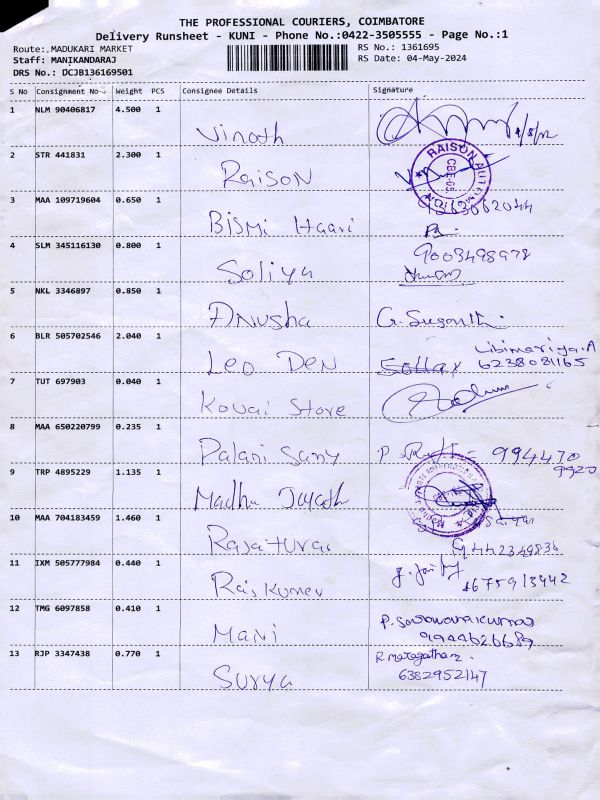 THE PROFESSIONAL COURIERS, COIMBATORE
Delivery Runsheet - KUNI - Phone No.:0422-3505555 - Page No.:1
Route:.MADUKARI MARKET
RS No.: 1361695
Staff: MANIKANDARAJ
RS Date: 04-May-2024
DRS No.: DCJB136169501
S No Consignment No Weight PCS Consignee Details Signature
1 NLM 90406817 4.500 1
Vinoth
2 STR 441831 2.300 1
RAISON
Raison
3 MAA 109719604 0.650 1
Bismi Haari
4 SLM 345116130 0.800 1
9003498978
Soliya
5 NKL 3346897 0.850 1
Anusha G. Suganth.
6 BLR 505702546 2.040 1
Libimariya.A
Leo Den 6238081165
7 TUT 697903 0.040 1
Kovai Store
8 MAA 650220799 0.235 1
Palani Samy 994470
9920
9 TRP 4895229 1.135 1
Madhu
10 MAA 704183459 1.460 1
9442349836
11 IXM 505777984 0.440 1
Raj Kumar
12 TMG 6097858 0.410 1
P. Saravanakumar
Mani 9944626689
13 RJP 3347438 0.770 1
6382952147
Surya